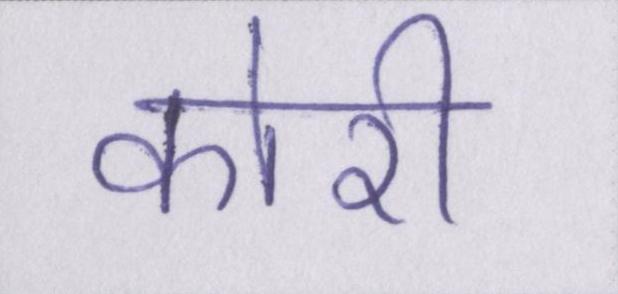 कोरी